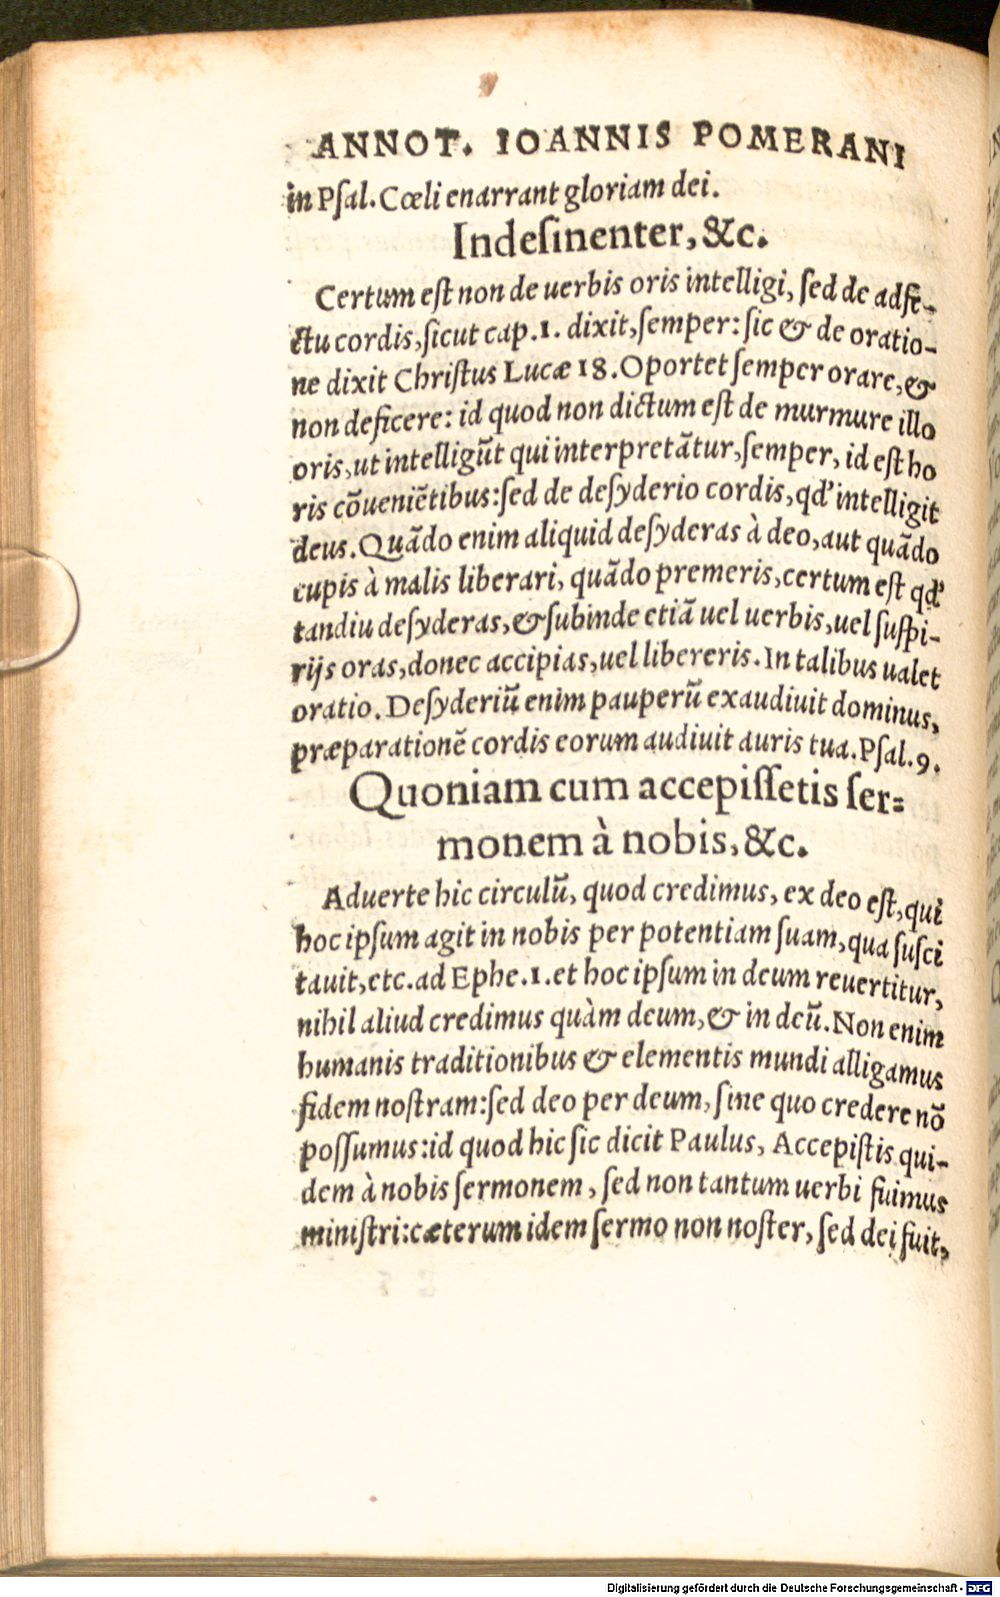 ANNOT. IOANNIS POMERANI
in Pſal. Cœli enarrant gloriam dei.
Indeſinenter, &c.
Certum eſt non de uerbis oris intelligi, ſed de adfe-
ctu cordis, ſicut cap. 1. dixit, ſemper: ſic & de oratio-
ne dixit Chriſtus Lucæ 18. Oportet ſemper orare, &
non deficere: id quod non dictum eſt de murmure illo
oris, ut intelligũt qui interpretãtur, ſemper, id eſt ho
ris cõueniẽtibus: ſed de deſyderio cordis, qd' intelligit
deus. Quãdo enim aliquid deſyderas à deo, aut quãdo
cupis à malis liberari, quãdo premeris, certum eſt qd'
tandiu deſyderas, & ſubinde etiã uel uerbis, uel ſuſpi-
rijs oras, donec accipias, uel libereris. In talibus ualet
oratio. Deſyderiũ enim pauperũ exaudiuit dominus,
præparationẽ cordis eorum audiuit auris tua. Pſal. 9.
Quoniam cum accepiſſetis ſer=
monem à nobis, &c.
Aduerte hic circulũ, quod credimus, ex deo eſt, qui
hoc ipſum agit in nobis per potentiam ſuam, qua ſuſci
tauit, etc. ad Ephe. 1. et hoc ipſum in deum reuertitur,
nihil aliud credimus quàm deum, & in deũ. Non enim
humanis traditionibus & elementis mundi alligamus
fidem noſtram: ſed deo per deum, ſine quo credere nõ
poſſumus: id quod hic ſic dicit Paulus, Accepiſtis qui-
dem à nobis ſermonem, ſed non tantum uerbi fuimus
miniſtri: cæterum idem ſermo non noſter, ſed dei fuit,
Digitalisierung gefördert durch die Deutsche Forschungsgemeinschaft - DFG